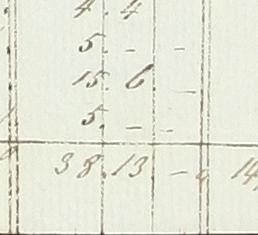 4. 4
5. - -
15. 6. -
5. - -
38. 13 - 14